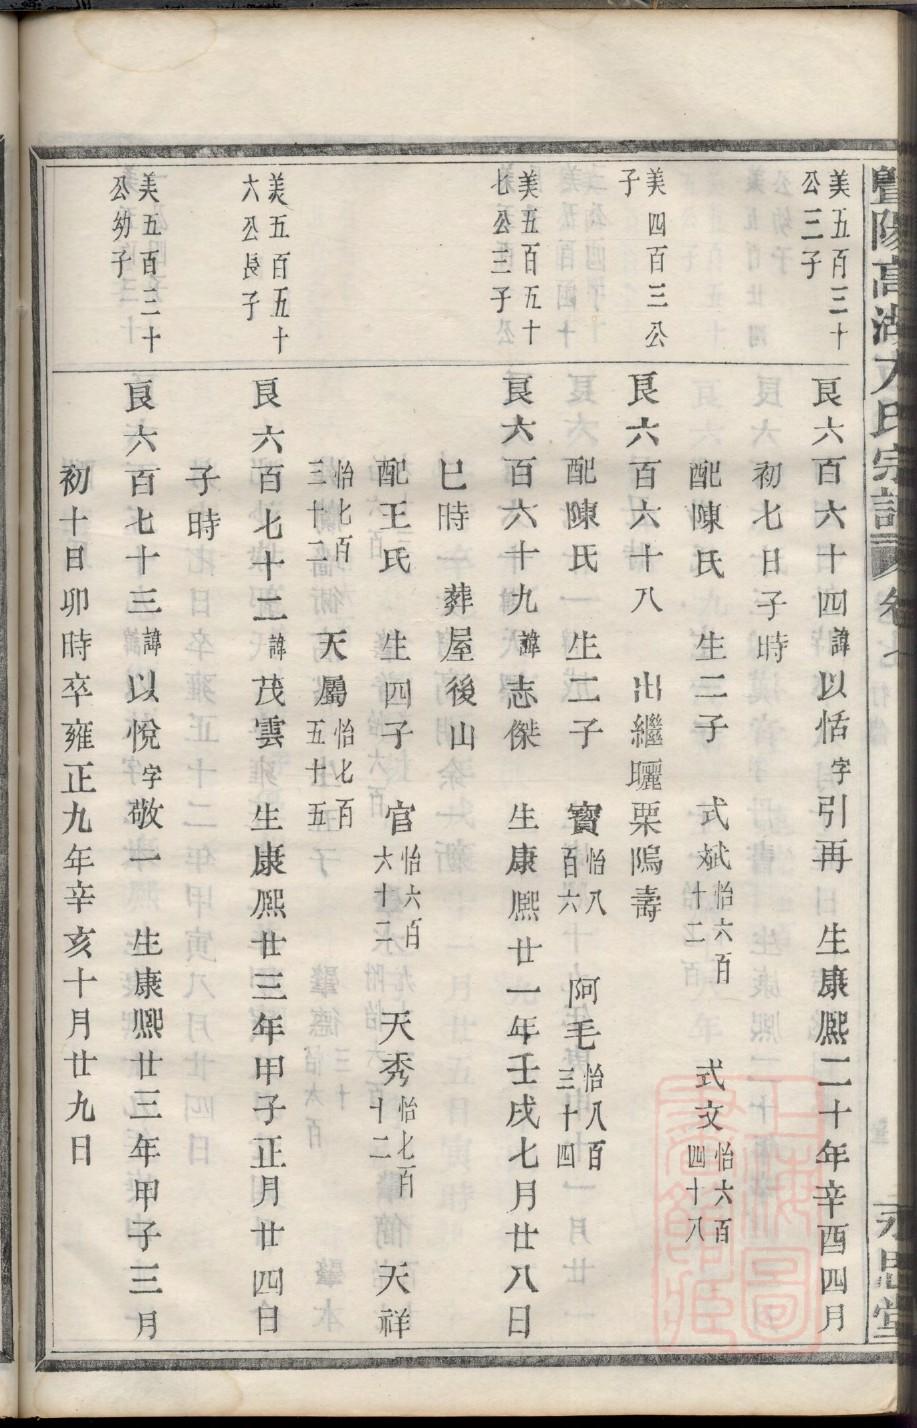 暨陽高湖方氏宗譜 卷七 永思堂
美五百三十公三子
艮六百六十四諱以恬字引再 生康熙二十年辛酉四月
初七日子時
配陳氏 生二子 式斌怡六百十二 式文怡六百四十八
美四百三公子
艮六百六十八 出繼瓈栗隖壽
配陳氏 生二子 寶怡八百六 阿毛怡八百三十四
美五百五十七公三子
艮六百六十九諱志傑 生康熙廿一年壬戌七月廿八日
巳時 葬屋後山
配王氏 生四子 官怡六百六十二 天秀怡七百十二 天祥
怡七百三十二 天屬怡七百五十五
美五百五十六公長子
艮六百七十二諱茂雲 生康熙廿三年甲子正月廿四日
子時
美五百三十公幼子
艮六百七十三諱以悅字敬一 生康熙廿三年甲子三月
初十日卯時卒雍正九年辛亥十月廿九日